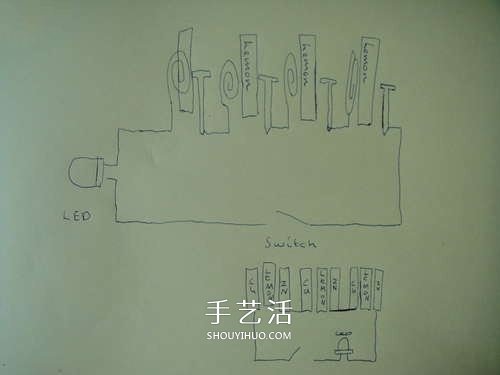 Lemon
Lemon
Lemon
LED
Switch
Cu
LEMON
ZN
Cu
LEMON
ZN
Cu
LEMON
ZN
LED
手艺活
SHOUYIHUO.COM